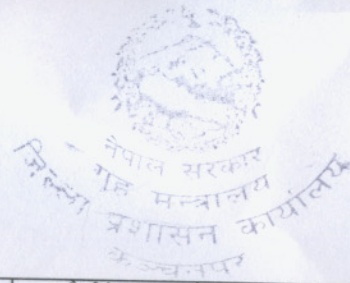 नेपाल सरकार
गृह मन्त्रालय
जिल्ला प्रशासन कार्यालय
कञ्चनपुर